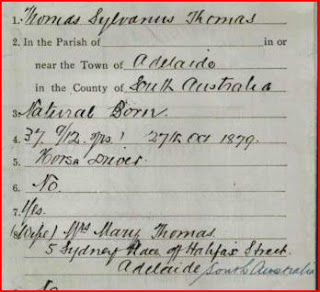 1. Thomas Sylvanus Thomas
2. In the Parish of in or
near the Town of Adelaide
in the County of South Australia
3. Natural Born
4. 37 9/12 yrs! 27th Oct 1879.
5. Horse Driver
6. No.
7. Yes.
(Wife) Mrs Mary Thomas
5 Sydney Place off Halifax Street
Adelaide South Australia